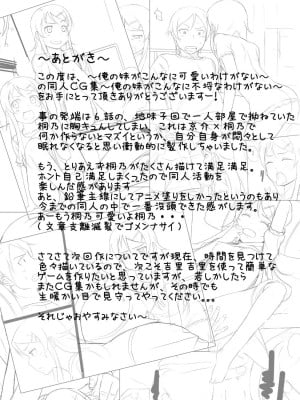 ～あとがき～
この度は、～俺の妹がこんなに可愛いわけがない～
の同人CG集～俺の妹がこんなに不埒なわけがない～
をお手にとって頂きありがとうございますー！
事の発端は6話の、地味子回で一人部屋で拗ねていた
桐乃に胸キュンしてしまい、これは京介×桐乃で
何か作らないとマズイというか、自分自身が悶々として
眠れなくなると思い衝動的に製作しちゃいました。
もう、とりあえず桐乃がたくさん描けて満足満足。
ホント自己満足しまくったので同人活動を
楽しんだ感があります
あと、鉛筆主線にしてアニメ塗りをしかっというのもあり
今までの同人の中で一番没頭できた感がします。
あーもう桐乃可愛いよ桐乃・・・
(文章支離滅裂でゴメンナサイ)
さてさて次回作についてですが現在、時間を見つけて
色々描いているので、次こそ吉里吉里を使って簡単な
ゲームを作りたいと思っていますが、若しかしたら
またCG集かもしれませんが、その時でも
生暖かい目で見守ってやってください。。。
それじゃおやすみなさい～